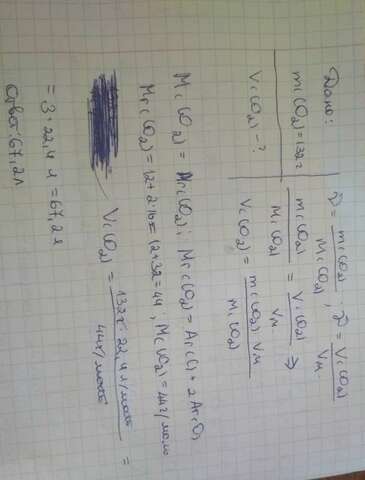 Дано:
m(CO2)=132г
V(CO2)-?
ν = m(CO2) / M(CO2) ; ν = V(CO2) / VM
m(CO2) / M(CO2) = V(CO2) / VM ⇒
V(CO2) = m(CO2) VM / M(CO2)
M(CO2) = Mr(CO2); Mr(CO2) = Ar(C) + 2Ar(O)
Mr(CO2) = 12+2·16 = 12+32 = 44; M(CO2) = 44г/моль
V(CO2) = 132г · 22,4 л/моль / 44г/моль =
= 3 · 22,4 л = 67,2л
Ответ: 67,2л